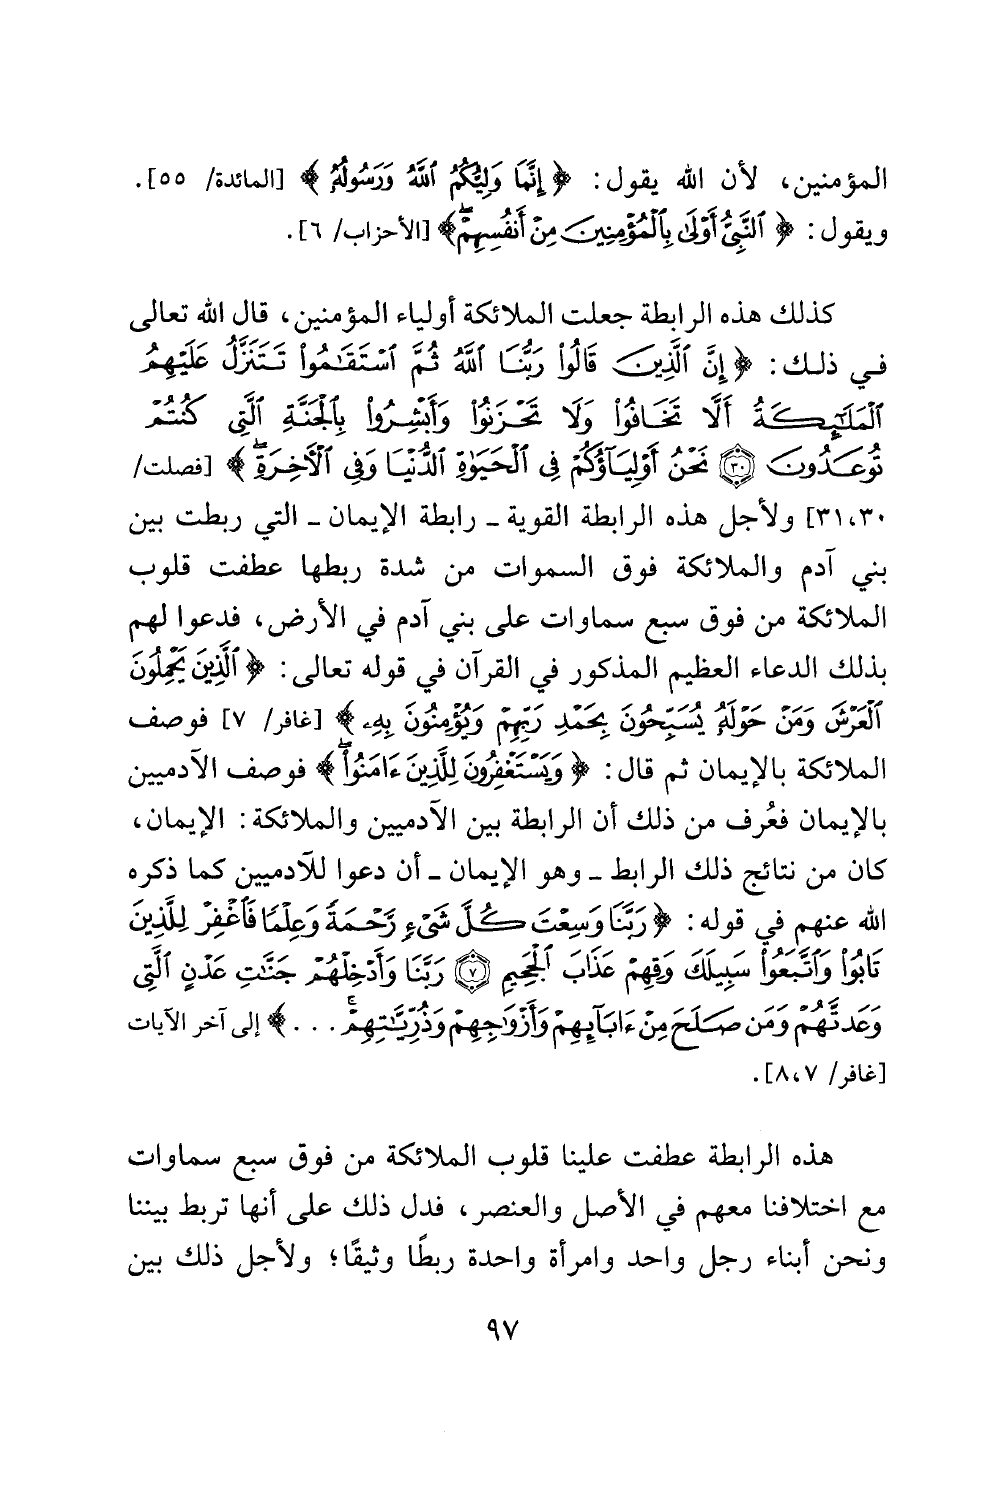 المؤمنين، لأن الله يقول: ﴿ إِنَّمَا وَلِيُّكُمُ ٱللَّهُ وَرَسُولُهُۥ ﴾ [المائدة/ ٥٥].
ويقول: ﴿ ٱلنَّبِىُّ أَوْلَىٰ بِٱلْمُؤْمِنِينَ مِنْ أَنفُسِهِمْۖ ﴾ [الأحزاب/ ٦].
كذلك هذه الرابطة جعلت الملائكة أولياء المؤمنين، قال الله تعالى
في ذلك: ﴿ إِنَّ ٱلَّذِينَ قَالُوا۟ رَبُّنَا ٱللَّهُ ثُمَّ ٱسْتَقَٰمُوا۟ تَتَنَزَّلُ عَلَيْهِمُ
ٱلْمَلَٰٓئِكَةُ أَلَّا تَخَافُوا۟ وَلَا تَحْزَنُوا۟ وَأَبْشِرُوا۟ بِٱلْجَنَّةِ ٱلَّتِى كُنتُمْ
تُوعَدُونَ ۝٣٠ نَحْنُ أَوْلِيَآؤُكُمْ فِى ٱلْحَيَوٰةِ ٱلدُّنْيَا وَفِى ٱلْءَاخِرَةِۖ ﴾ [فصلت/
٣١،٣٠] ولأجل هذه الرابطة القوية ـ رابطة الإيمان ـ التي ربطت بين
بني آدم والملائكة فوق السموات من شدة ربطها عطفت قلوب
الملائكة من فوق سبع سماوات على بني آدم في الأرض، فدعوا لهم
بذلك الدعاء العظيم المذكور في القرآن في قوله تعالى: ﴿ ٱلَّذِينَ يَحْمِلُونَ
ٱلْعَرْشَ وَمَنْ حَوْلَهُۥ يُسَبِّحُونَ بِحَمْدِ رَبِّهِمْ وَيُؤْمِنُونَ بِهِۦ ﴾ [غافر/ ٧] فوصف
الملائكة بالإيمان ثم قال: ﴿ وَيَسْتَغْفِرُونَ لِلَّذِينَ ءَامَنُوا۟ۖ ﴾ فوصف الآدميين
بالإيمان فعُرف من ذلك أن الرابطة بين الآدميين والملائكة: الإيمان،
كان من نتائج ذلك الرابط ـ وهو الإيمان ـ أن دعوا للآدميين كما ذكره
الله عنهم في قوله: ﴿ رَبَّنَا وَسِعْتَ كُلَّ شَىْءٍ رَّحْمَةً وَعِلْمًا فَٱغْفِرْ لِلَّذِينَ
تَابُوا۟ وَٱتَّبَعُوا۟ سَبِيلَكَ وَقِهِمْ عَذَابَ ٱلْجَحِيمِ ۝٧ رَبَّنَا وَأَدْخِلْهُمْ جَنَّٰتِ عَدْنٍ ٱلَّتِى
وَعَدتَّهُمْ وَمَن صَلَحَ مِنْ ءَابَآئِهِمْ وَأَزْوَٰجِهِمْ وَذُرِّيَّٰتِهِمْۚ . . . ﴾ إلى آخر الآيات
[غافر/ ٨،٧].
هذه الرابطة عطفت علينا قلوب الملائكة من فوق سبع سماوات
مع اختلافنا معهم في الأصل والعنصر، فدل ذلك على أنها تربط بيننا
ونحن أبناء رجل واحد وامرأة واحدة ربطًا وثيقًا؛ ولأجل ذلك بين
٩٧